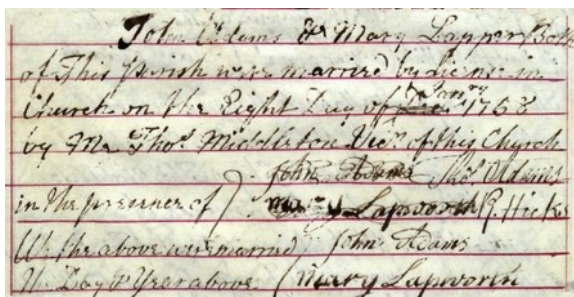 John Adams & Mary Lapper Both
of This parish were married by licence in
Church on the Eight Day of Janry 1758
by Me Thos Middleton Vicr of this Church
John Adams Thos Adams
in the presence of Mary Lapworth R. Hickes
We the above were married John Adams
the Day & Year above Mary Lapworth